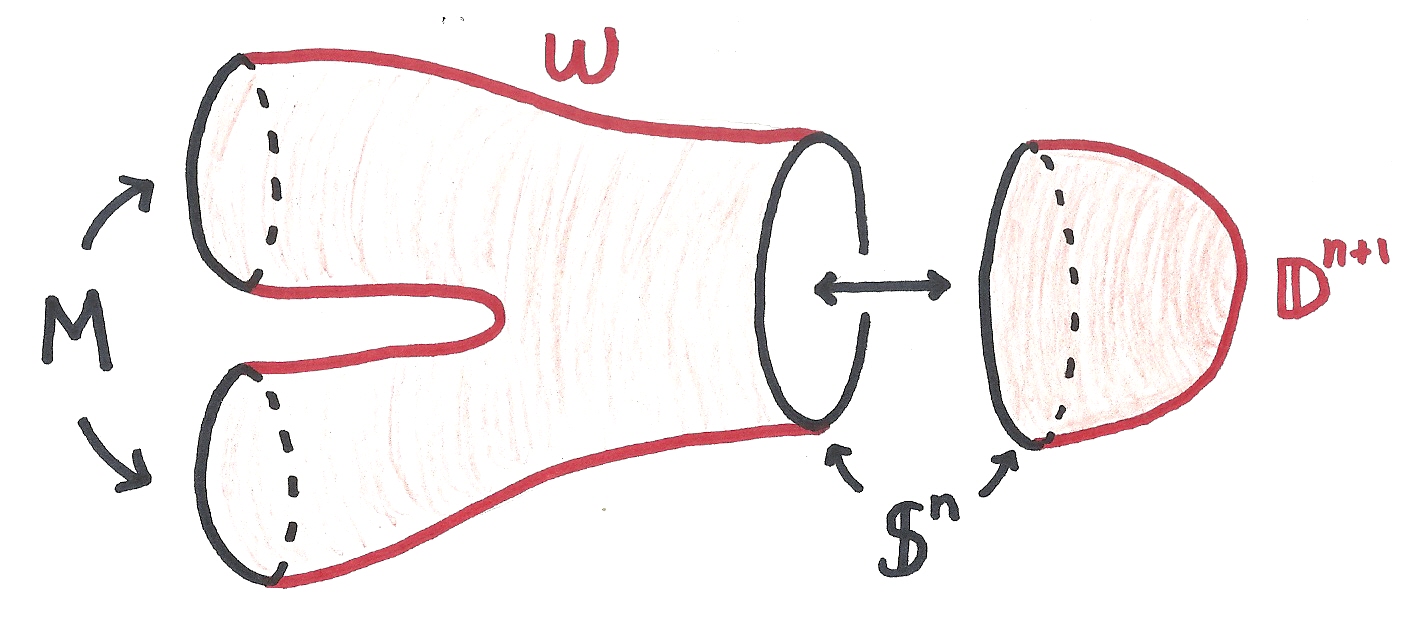 W
M
𝔻ⁿ⁺¹
𝕊ⁿ